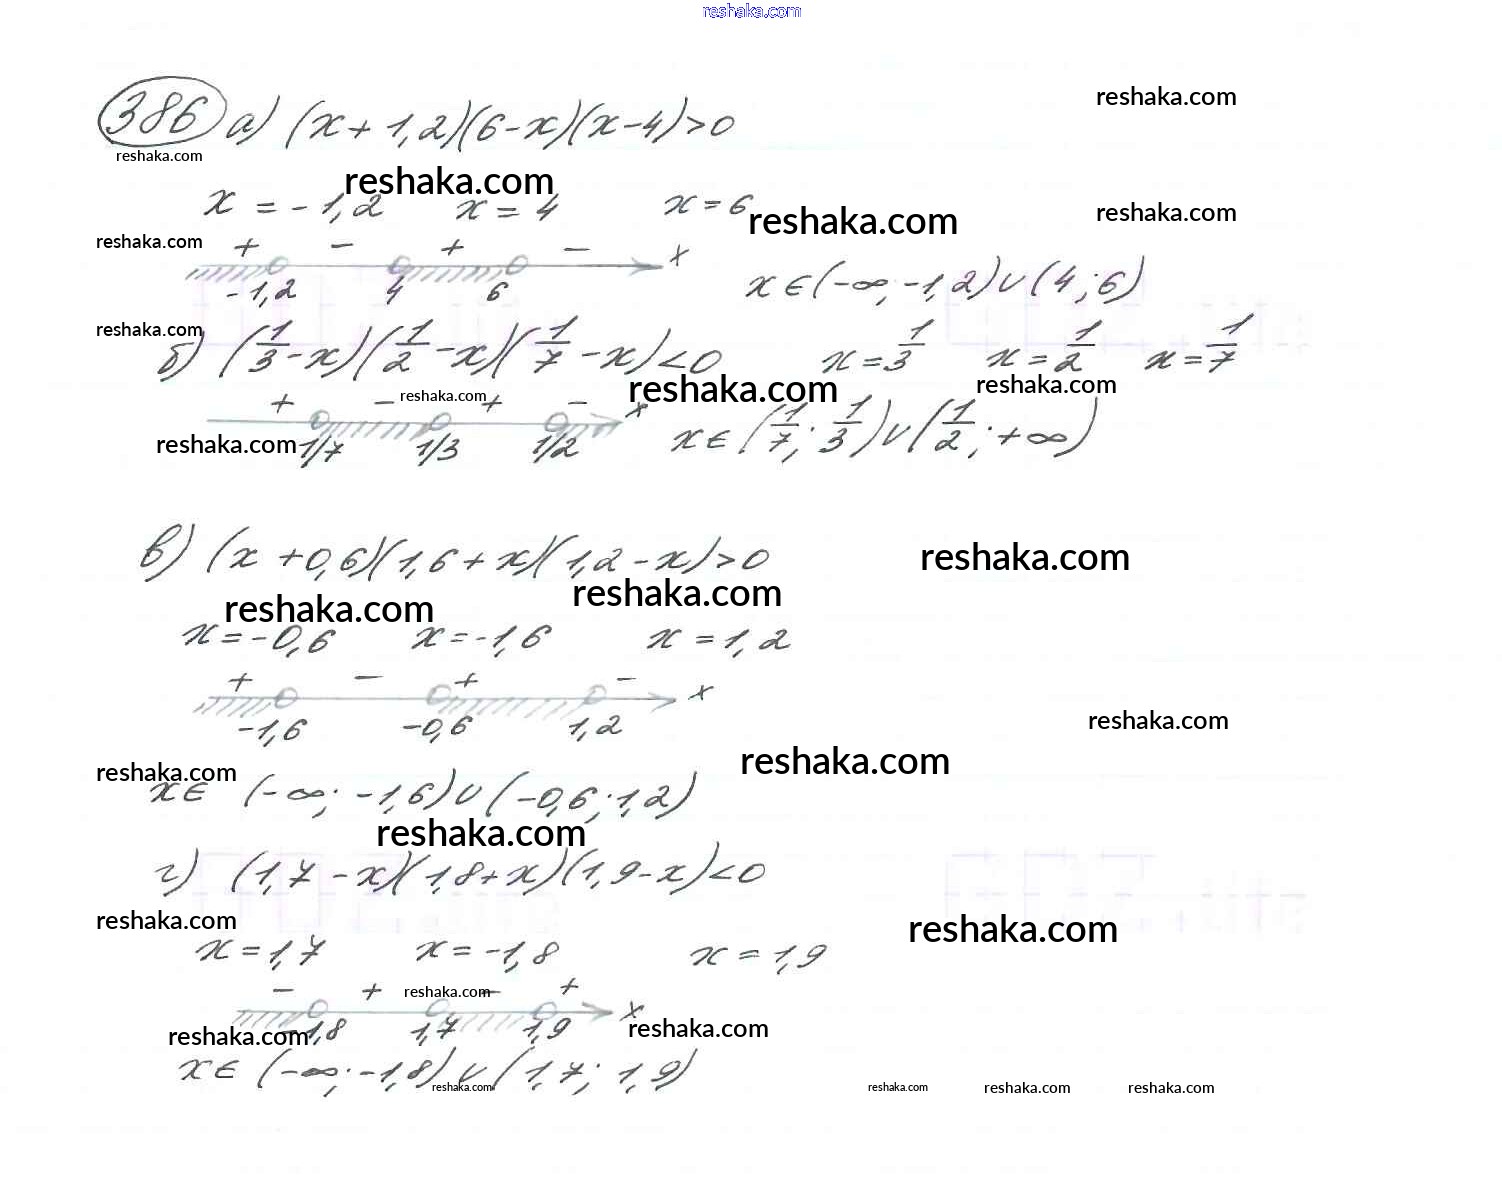 reshaka.com
386 а) (x + 1,2)(6 - x)(x - 4) > 0
reshaka.com
reshaka.com
reshaka.com
x = - 1,2 x = 4 x = 6
reshaka.com
reshaka.com
reshaka.com
+ - + - x
-1,2 4 6
x ∈ (-∞; -1,2) ∪ (4; 6)
reshaka.com
б) (1/3 - x)(1/2 - x)(1/7 - x) < 0 x = 1/3 x = 1/2 x = 1/7
reshaka.com
reshaka.com
reshaka.com
+ - + - x
1/7 1/3 1/2
reshaka.com
x ∈ (1/7; 1/3) ∪ (1/2; +∞)
в) (x + 0,6)(1,6 + x)(1,2 - x) > 0
reshaka.com
reshaka.com
reshaka.com
x = -0,6 x = -1,6 x = 1,2
+ - + - x
-1,6 -0,6 1,2
reshaka.com
reshaka.com
reshaka.com
x ∈ (-∞; -1,6) ∪ (-0,6; 1,2)
reshaka.com
г) (1,7 - x)(1,8 + x)(1,9 - x) < 0
reshaka.com
reshaka.com
x = 1,7 x = -1,8 x = 1,9
- + - + x
reshaka.com
-1,8 1,7 1,9
reshaka.com
reshaka.com
x ∈ (-∞; -1,8) ∪ (1,7; 1,9)
reshaka.com
reshaka.com
reshaka.com
reshaka.com